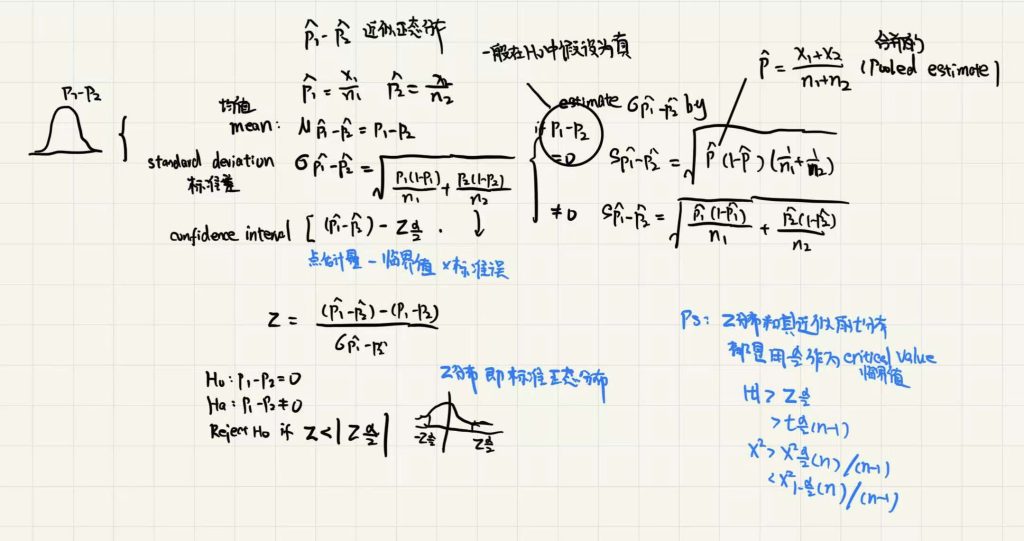 p̂₁ - p̂₂ 近似正态分布
p̂₁ = x₁/n₁  p̂₂ = x₂/n₂
p₁-p₂
均值
mean: μ p̂₁-p̂₂ = p₁-p₂
standard deviation σ p̂₁-p̂₂ = √(p₁(1-p₁)/n₁ + p₂(1-p₂)/n₂)
标准差
confidence interval [ (p̂₁-p̂₂) - Z α/2 · ↓
点估计量 - 临界值 × 标准误
一般在H₀中假设为真
estimate σ p̂₁-p̂₂ by
if p₁-p₂ = 0  S p̂₁-p̂₂ = √(p̂(1-p̂)(1/n₁ + 1/n₂))
≠ 0  S p̂₁-p̂₂ = √(p̂₁(1-p̂₁)/n₁ + p̂₂(1-p̂₂)/n₂)
p̂ = (x₁+x₂)/(n₁+n₂) (pooled estimate)
Z = ((p̂₁-p̂₂)-(p₁-p₂))/(σ p̂₁-p̂₂)
H₀: p₁-p₂=0
Ha: p₁-p₂≠0
Reject H₀ if Z<|Z α/2|
Z分布即标准正态分布
-Z α/2  Z α/2
Ps: Z分布和其近似分布
都是用 α/2 作为critical value
临界值
|t| > Z α/2
> t α/2 (n-1)
x² > x² α/2 (n)/(n-1)
< x² 1-α/2 (n)/(n-1)